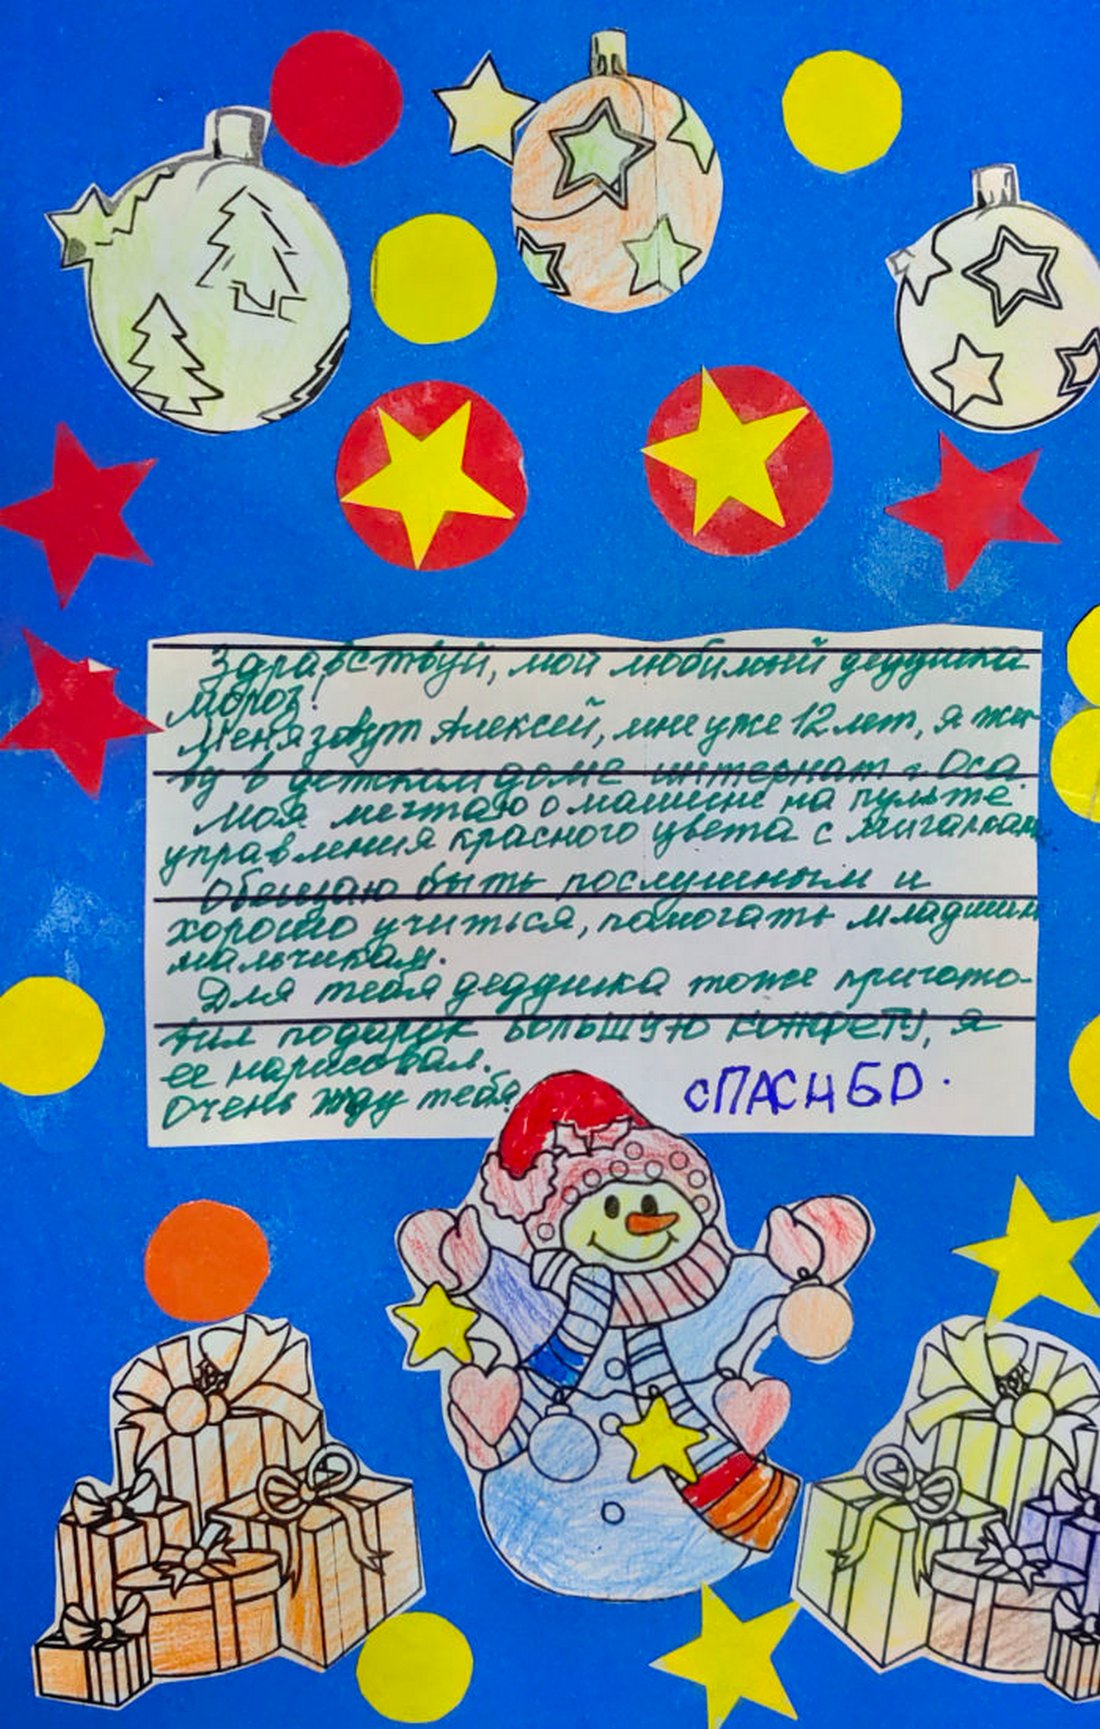 Здравствуй, мой любимый деддушка
мороз!
Меня зовут Алексей, мне уже 12 лет, я жи-
ву в детском доме интернат г. Оса.
Моя мечтаю о машине на пульте
управления красного цвета с мигалками
Обещаю быть послушным и
хорошо учиться, помогать младшим
мальчикам.
Для тебя деддушка тоже пригото-
вил подарок большую конфету, я
ее нарисовал.
Очень жду тебя.
СПАСИБО.